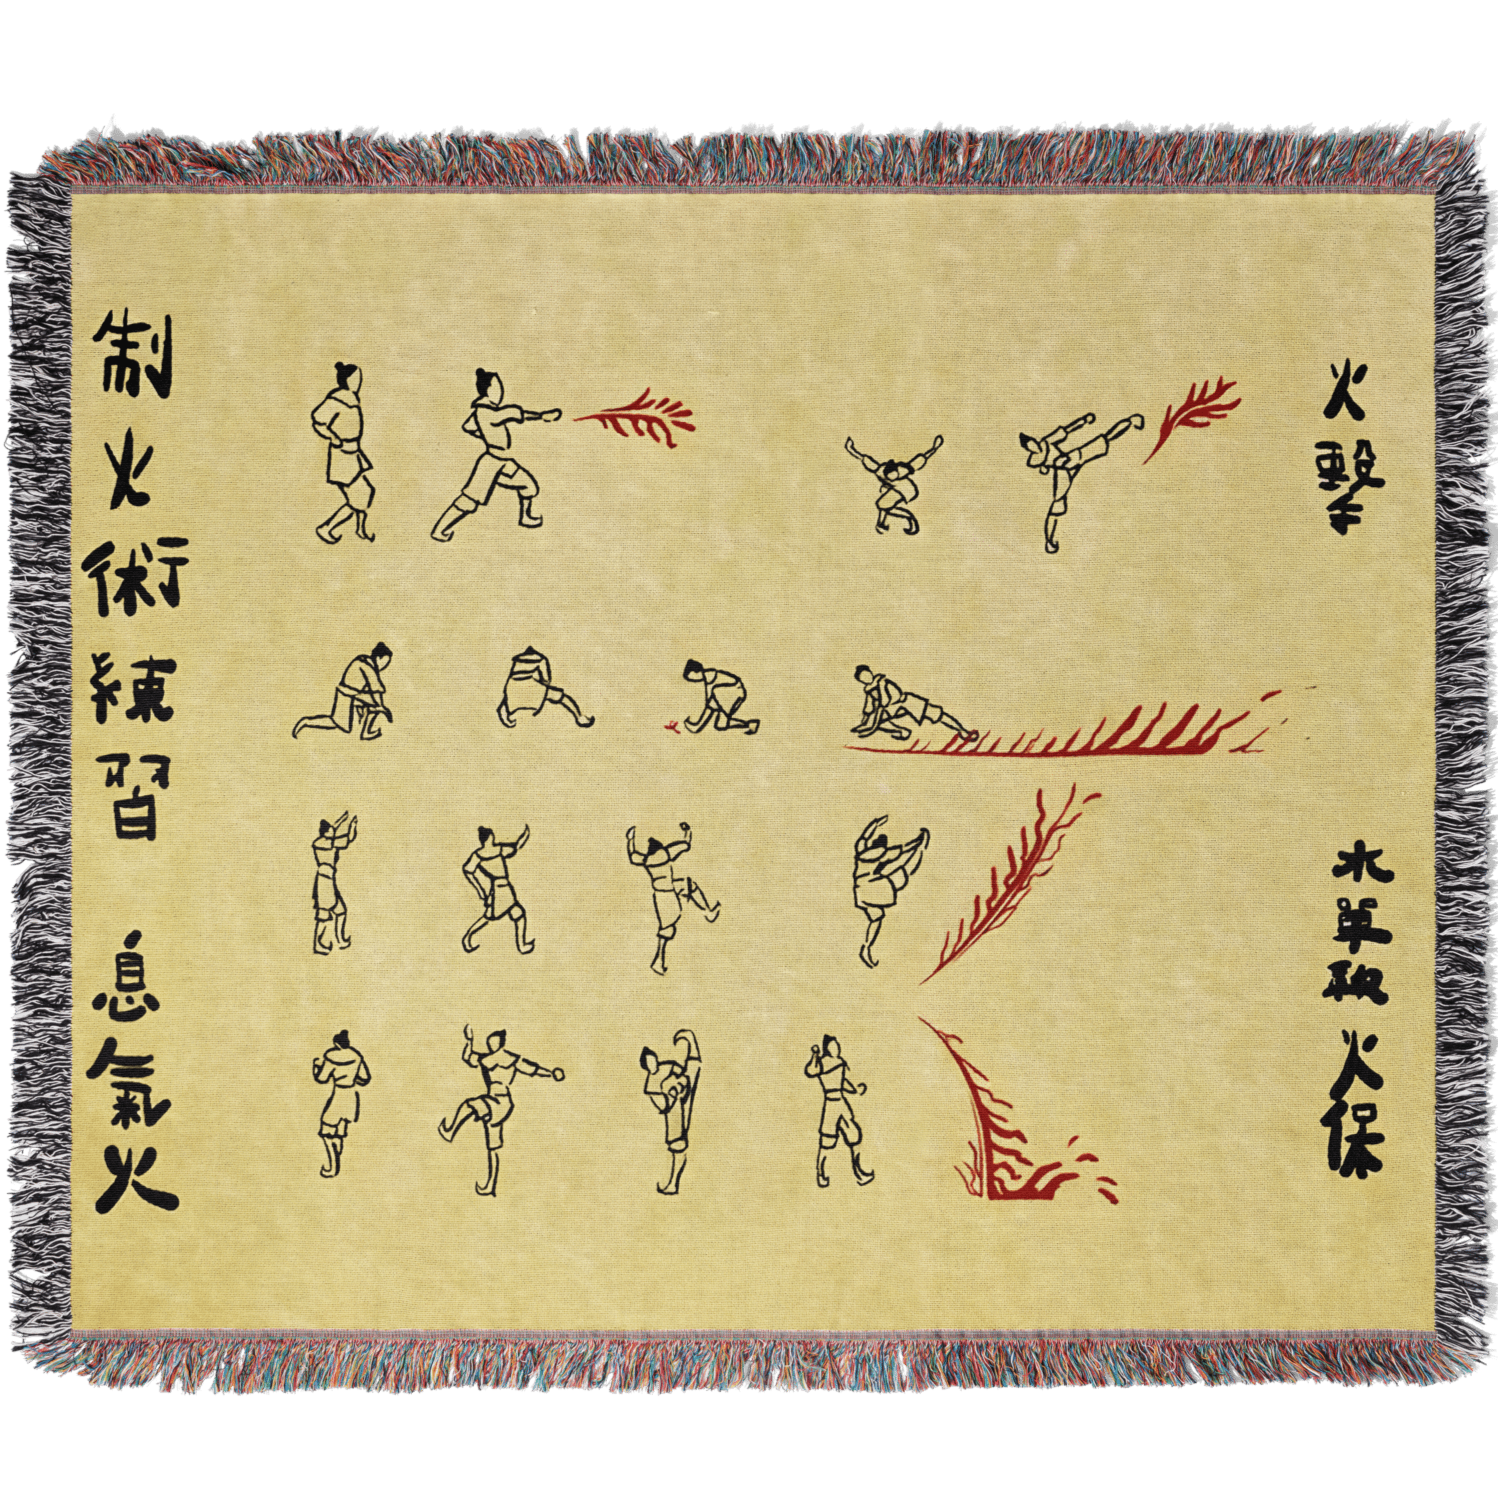 制火術練習
息氣火
火擊
水單
火保